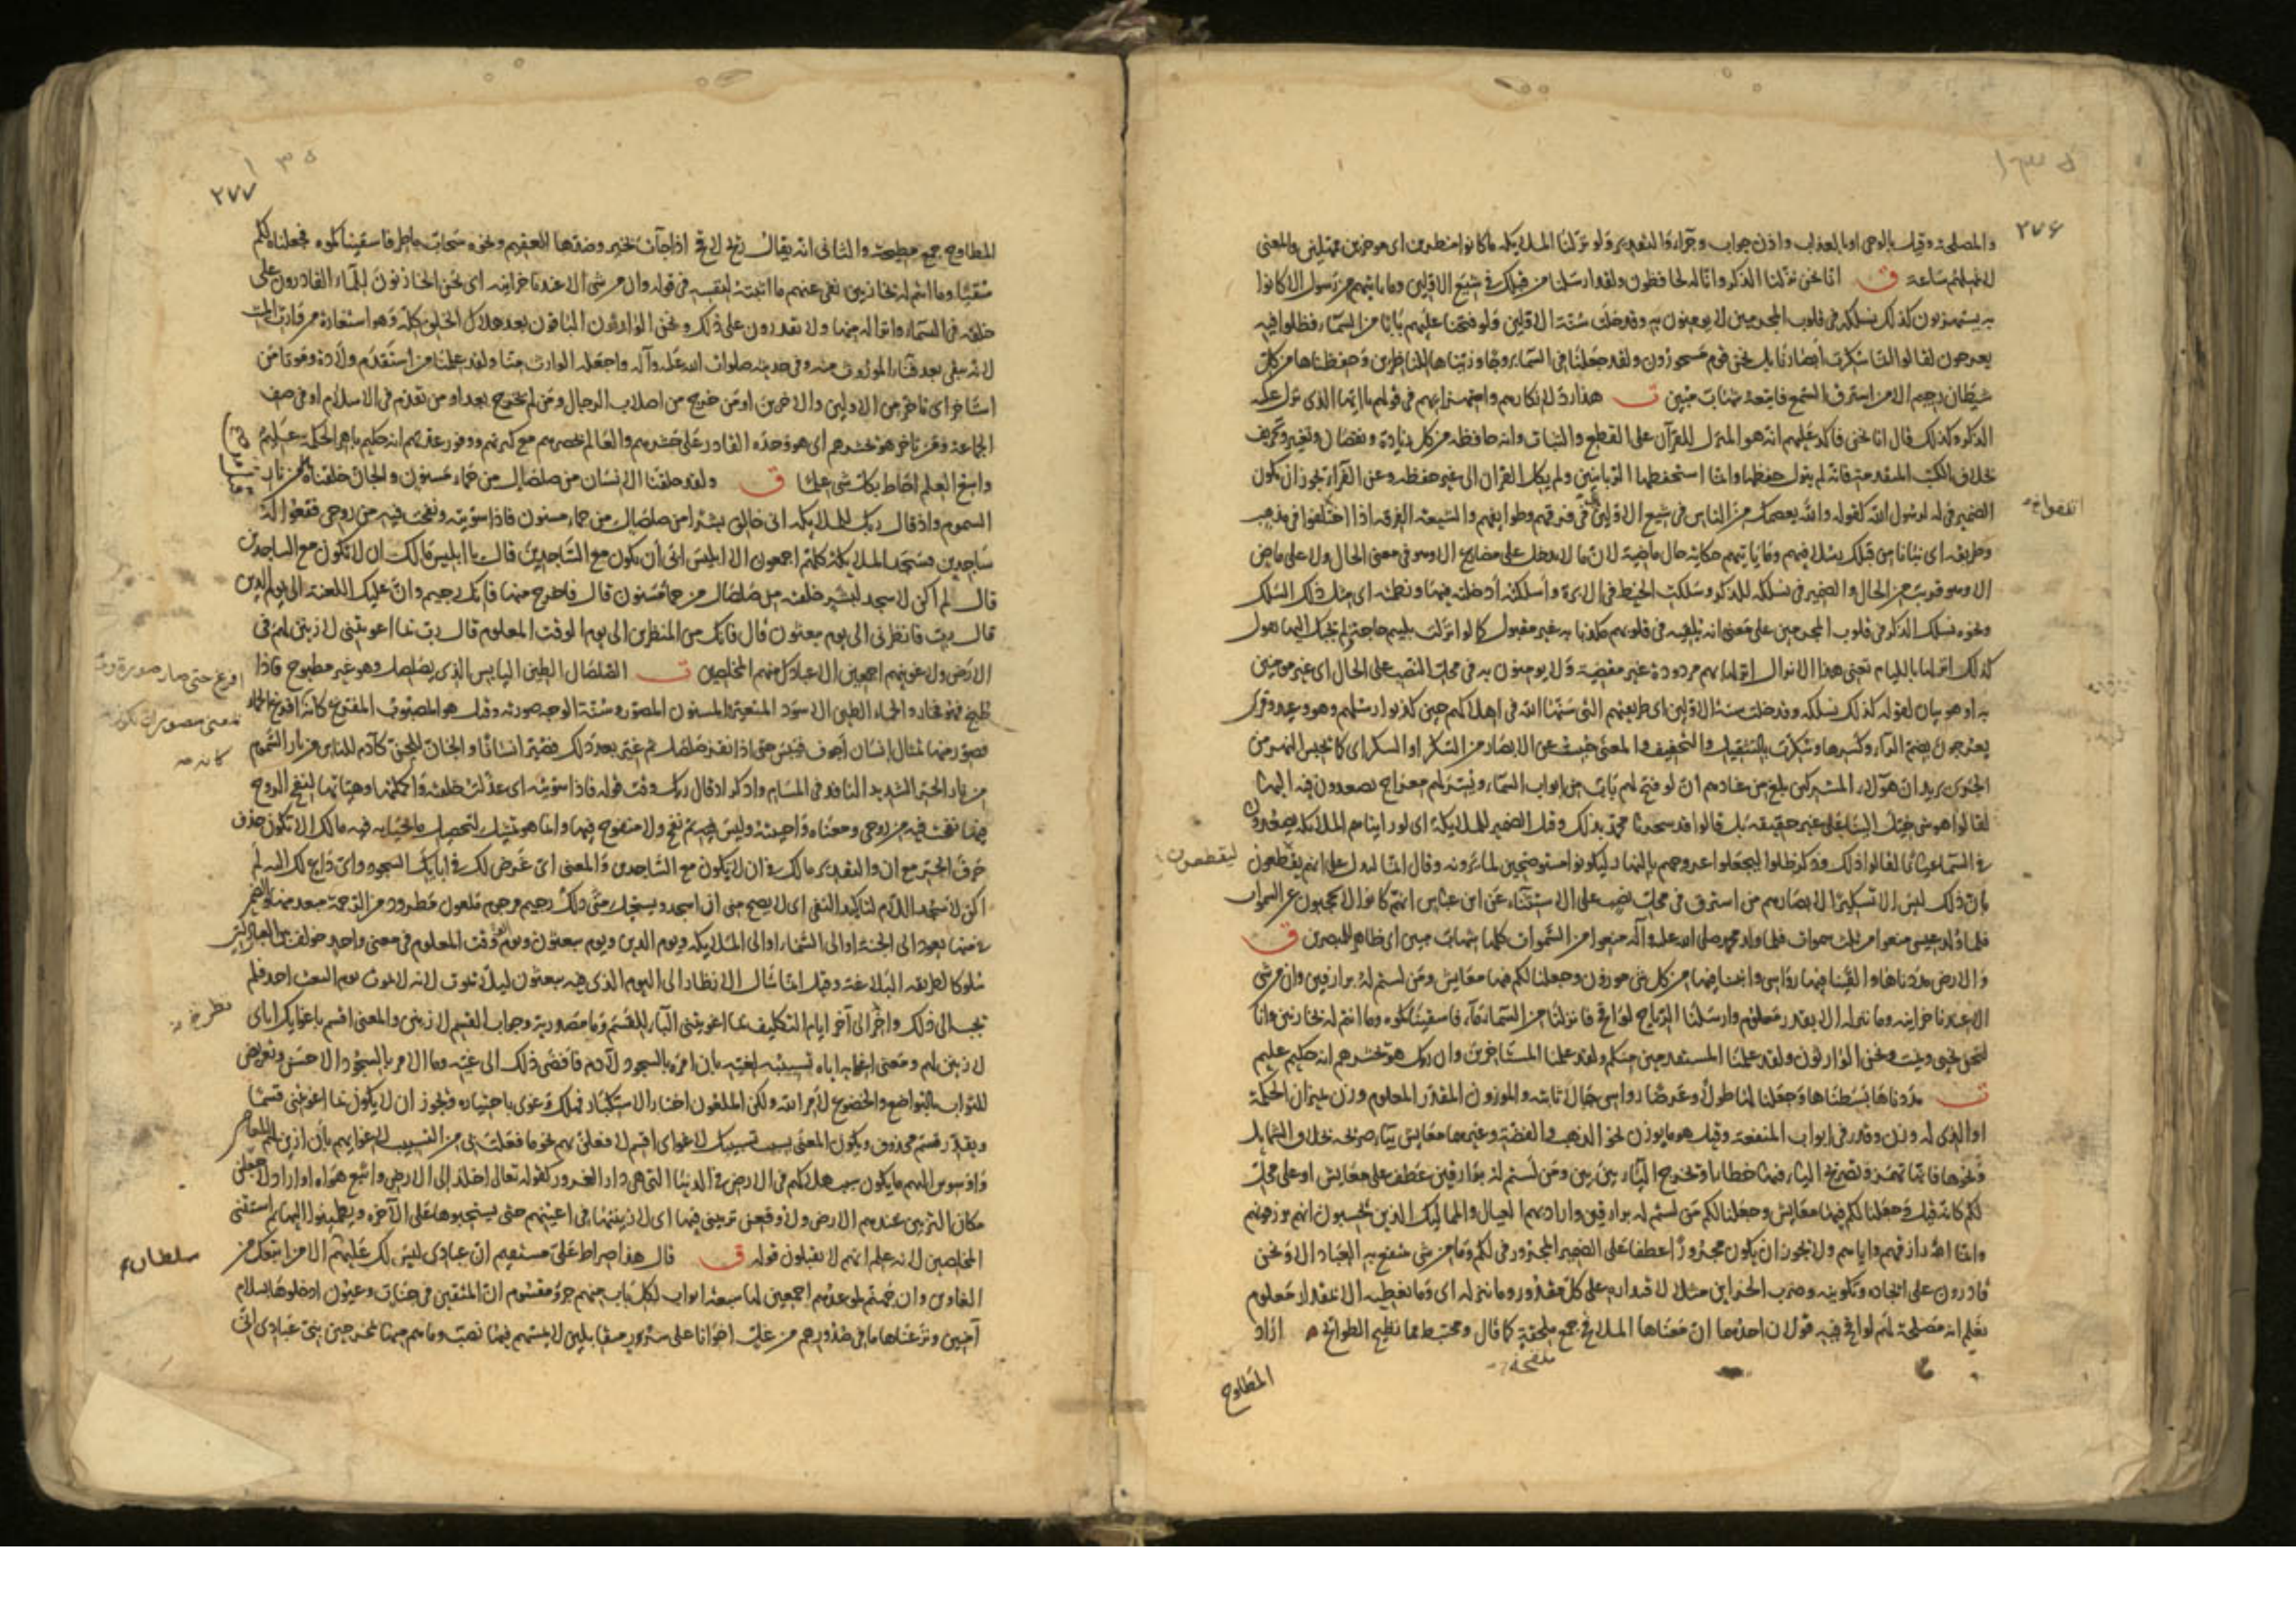 ٢٧٦
والمصلحة وقيل بالوحى او بالعذاب واذن جواب وجزاء والتقدير ولو نزلنا الملائكة ما كانوا منظرين اى موخرين ممهلين والمعنى
لا نمهلهم ساعة ق انا نحن نزلنا الذكر وانا له لحافظون ولقد ارسلنا من قبلك فى شيع الاولين وما ياتيهم من رسول الا كانوا
به يستهزؤن كذلك نسلكه فى قلوب المجرمين لا يومنون به وقد خلت سنة الاولين ولو فتحنا عليهم بابا من السماء فظلوا فيه
يعرجون لقالوا انما سكرت ابصارنا بل نحن قوم مسحورون ولقد جعلنا فى السماء بروجا وزيناها للناظرين وحفظناها من كل
شيطان رجيم الا من استرق السمع فاتبعه شهاب مبين ت هذا رد لانكارهم واستهزائهم فى قولهم يا ايها الذى نزل عليه
الذكر ولذلك قال انا نحن فاكد عليهم انه هو المنزل للقرآن على القطع والثبات وانه حافظه من كل زيادة ونقصان وتغيير وتحريف
بخلاف الكتب المتقدمة فانه لم يتول حفظها وانما استحفظها الربانيين ولم يكل القران الى غير حفظه وعن الفراء يجوز ان يكون
الضمير فى له لرسول الله كقوله والله يعصمك من الناس فى شيع الاولين فى فرقهم وطوايفهم والشيعة الفرقة اذا اتفقوا فى مذهب
وطريقة اى نبانا من قبلك رسلا فيهم وما ياتيهم حكاية حال ماضية لان ما لا يدخل على مضارع الا وهو فى معنى الحال ولا على ماض
الا وهو قريب من الحال والضمير فى نسلكه للذكر وسلكت الخيط فى الابرة واسلكته ادخلته فيها ونظمته اى مثل ذلك السلك
ونحوه نسلك الذكر فى قلوب المجرمين على معنى انه يلقيه فى قلوبهم مكذبا به غير مقبول كما لو انزلت بلئيم حاجة فلم يجبك اليها تقول
كذلك انزلها باللئام تعنى هذا الانزال انزلها بهم مردودة غير مقضية ولا يومنون به فى محل النصب على الحال اى غير مومنين
به او هو بيان لقوله كذلك نسلكه وقد خلت سنة الاولين اى طريقتهم التى سنها الله فى اهلاكهم حين كذبوا رسلهم وهو وعيد وقرئ
يعرجون بضم الراء وكسرها وسكرت بالتثقيل والتخفيف والمعنى حبست عن الابصار من السكر او السكر اى كما يحبس النهر من
الجرى يريد ان هؤلاء المشركين بلغ من عنادهم ان لو فتح لهم باب من ابواب السماء ويسر لهم معراج يصعدون فيه اليها
لقالوا هو شىء يخيل الينا على غير حقيقة بل قالوا قد سحرنا محمد بذلك وقيل الضمير للملائكة اى لو اريناهم الملائكة يصعدون
فى السماء عيانا لقالوا ذلك وذكر ظلوا ليجعلوا عروجهم بالنهار ليكونوا مستوضحين لما يرونه وقال انما ليدل على انهم يقطعون
بان ذلك ليس الا تسكيرا لابصارهم من استرق فى محل نصب على الاستثناء عن ابن عباس انهم كانوا لا يحجبون عن السموات
فلما ولد عيسى منعوا من ثلث سموات فلما ولد محمد صلى الله عليه وآله منعوا من السموات كلها شهاب مبين اى ظاهر للمبصرين ق
والارض مددناها والقينا فيها رواسى وانبتنا فيها من كل شىء موزون وجعلنا لكم فيها معايش ومن لستم له برازقين وان من شى
الا عندنا خزائنه وما ننزله الا بقدر معلوم وارسلنا الرياح لواقح فانزلنا من السماء ماء فاسقيناكموه وما انتم له بخازنين وانا
لنحن نحيى ونميت ونحن الوارثون ولقد علمنا المستقدمين منكم ولقد علمنا المستاخرين وان ربك هو يحشرهم انه حكيم عليم
ت مددناها بسطناها وجعلنا لها طولا وعرضا رواسى جبالا ثابتة والموزون المقدر المعلوم وزن بميزان الحكمة
او الذى له وزن وقدر فى ابواب المنفعة وقيل هو ما يوزن نحو الذهب والفضة وغيرهما معايش بياء صريحة بخلاف الشمايل
ونحوها فانها تهمز وتصريح الياء فيها خطا او تخرج الياء بين بين ومن لستم له برازقين عطف على معايش او على محل
لكم كانه قيل وجعلنا لكم فيها معايش وجعلنا لكم من لستم له برازقين واراد بهم العيال والمماليك الذين تحسبون انهم يرزقونهم
وانما الله رازقهم واياهم ولا يجوز ان يكون مجرورا عطفا على الضمير المجرور فى لكم وما من شى ينتفع به العباد الا ونحن
قادرون على ايجاده وتكوينه وضرب الخزاين مثلا لاقتداره على كل مقدور وما ننزله اى وما نعطيه الا بمقدار معلوم
نعلم انه مصلحة لهم لواقح فيه قولان احدهما ان معناها الملاقح جمع ملقحة كما قال ومختبط مما تطيح الطوائح اراد
المطاوح
ليقطعون
٢٧٧
المطاوح جمع مطيحة والثانى انه يقال ريح لاقح اذا جآت بخير وضدها العقيم ونحوه سحاب ماطر فاسقيناكموه فجعلناه لكم
سقيا وما انتم له بخازنين نفى عنهم ما اثبته لنفسه فى قوله وان من شى الا عندنا خزاينه اى نحن الخازنون للماء القادرون على
خلقه فى السماء وانزاله منها ولا تقدرون على ذلك ونحن الوارثون الباقون بعد هلاك الخلق كله وهو استعارة من وارث الميت
لانه يبقى بعد فناء الموروث منه وفى حديثه صلوات الله عليه وآله واجعله الوارث منا ولقد علمنا من استقدم ولادة وموتا من
استاخر اى تاخر من الاولين والاخرين او من خرج من اصلاب الرجال ومن لم يخرج بعد او من تقدم فى الاسلام او فى صف
الجماعة ومن تاخر هو يحشرهم اى هو وحده القادر على حشرهم والعالم بحصرهم مع كثرتهم ووفور عددهم انه حكيم باهر الحكمة عليم
واسع العلم احاط بكل شى علما ق ولقد خلقنا الانسان من صلصال من حماء مسنون والجان خلقناه من نار
السموم واذ قال ربك للملائكة انى خالق بشرا من صلصال من حماء مسنون فاذا سويته ونفخت فيه من روحى فقعوا له
ساجدين فسجد الملائكة كلهم اجمعون الا ابليس ابى ان يكون مع الساجدين قال يا ابليس مالك ان لا تكون مع الساجدين
قال لم اكن لاسجد لبشر خلقته من صلصال من حماء مسنون قال فاخرج منها فانك رجيم وان عليك اللعنة الى يوم الدين
قال رب فانظرنى الى يوم يبعثون قال فانك من المنظرين الى يوم الوقت المعلوم قال رب بما اغويتنى لازينن لهم فى
الارض ولاغوينهم اجمعين الا عبادك منهم المخلصين ت الصلصال الطين اليابس الذى يصلصل وهو غير مطبوخ فاذا
طبخ فهو فخار والحماء الطين الاسود المتغير والمسنون المصور وسنة الوجه صورته وقيل هو المصبوب المفرغ كانه افرغ الحماء
فصور منها تمثال انسان اجوف فيبس حتى اذا نقر صلصل ثم غير بعد ذلك فصير انسانا والجان للجن كآدم للناس من نار السموم
من نار الحر الشديد النافذ فى المسام واذكر اذ قال ربك وقت قوله فاذا سويته اى عدلت خلقته واكملتها وهياتها لنفخ الروح
فيها نفخت فيه من روحى ومعناه واحييته وليس ثم نفخ ولا منفوخ فيها وانما هو تمثيل لتحصيل ما يحيا به فيه مالك الا تكون حذف
حرف الجر مع ان والتقدير مالك فى ان لا تكون مع الساجدين والمعنى اى غرض لك فى ابائك السجود واى داع لك اليه لم
اكن لاسجد اللام لتاكيد النفى اى لا يصح منى ان اسجد ويستحيل منى ذلك رجيم مرجوم ملعون مطرود من الرحمة مبعد منها والضمير
فى منها يعود الى الجنة او الى السماء او الى الملائكة ويوم الدين ويوم يبعثون ويوم الوقت المعلوم فى معنى واحد خولف بين العبارات
سلوكا لطريقة البلاغة وقيل انما سال الانظار الى اليوم الذى فيه يبعثون ليلا يموت لانه لا يموت يوم البعث احد فلم
يجب الى ذلك واخر الى آخر ايام التكليف بما اغويتنى الباء للقسم وما مصدرية وجواب القسم لازينن والمعنى اقسم باغوائك اياى
لازينن لهم ومعنى اغوايه اياه تسبيبه لغيه بان امره بالسجود لآدم فافضى ذلك الى غيه وما الامر بالسجود الا حسن وتعريض
للثواب بالتواضع والخضوع لامر الله ولكن الملعون اختار الاستكبار فهلك وغوى باختياره ويجوز ان لا يكون بما اغويتنى قسما
ويقدر قسم محذوف ويكون المعنى بسبب تسبيبك لاغواى اقسم لافعلن بهم نحو ما فعلت بى من التسبيب لاغوايهم بان ازين لهم المعاصى
واوسوس اليهم ما يكون سبب هلاكهم فى الارض فى الدنيا التى هى دار الغرور كقوله تعالى اخلد الى الارض واتبع هواه او اراد لاجعلن
مكان التزيين عندهم الارض ولاوقعن تزيينى فيها اى لازينها فى اعينهم حتى يستحبوها على الآخرة ويطمئنوا اليها ثم استثنى
المخلصين لانه علم انهم لا يقبلون قوله ق قال هذا صراط على مستقيم ان عبادى ليس لك عليهم الا من اتبعك من
الغاوين وان جهنم لموعدهم اجمعين لها سبعة ابواب لكل باب منهم جزؤ مقسوم ان المتقين فى جنات وعيون ادخلوها بسلام
آمنين ونزعنا ما فى صدورهم من غل اخوانا على سرر متقابلين لا يمسهم فيها نصب وما هم منها بمخرجين نبئ عبادى انى
افرغ حتى صار صورة
كانه
سلطان